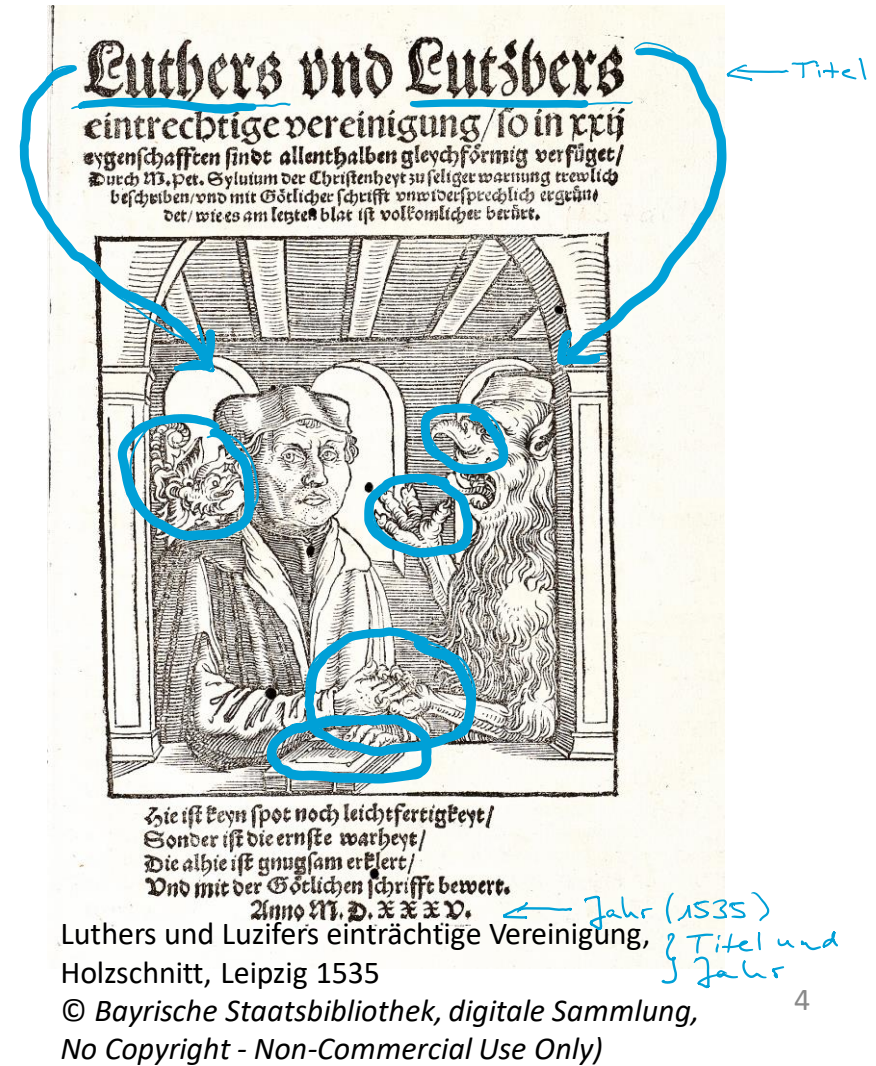 Luthers vnd Lutzbers
eintrechtige vereinigung/ so in xxij
eygenschafften sindt allenthalben gleychförmig verfüget/
Durch M. Pet. Syluium der Christenheyt zu seliger warnung trewlich
beschriben/ vnd mit Götlicher schrifft vnwidersprechlich ergrün⸗
det/ wie es am letzten blat ist volkomlicher berürt.
← Titel
Hie ist keyn spot noch leichtfertigkeyt/
Sonder ist die ernste warheyt/
Die alhie ist gnugsam erklert/
Vnd mit der Götlichen schrifft bewert.
Anno M. D. X X X V.
← Jahr (1535)
Luthers und Luzifers einträchtige Vereinigung,
} Titel und
Jahr
Holzschnitt, Leipzig 1535
© Bayrische Staatsbibliothek, digitale Sammlung,
No Copyright - Non-Commercial Use Only)
4